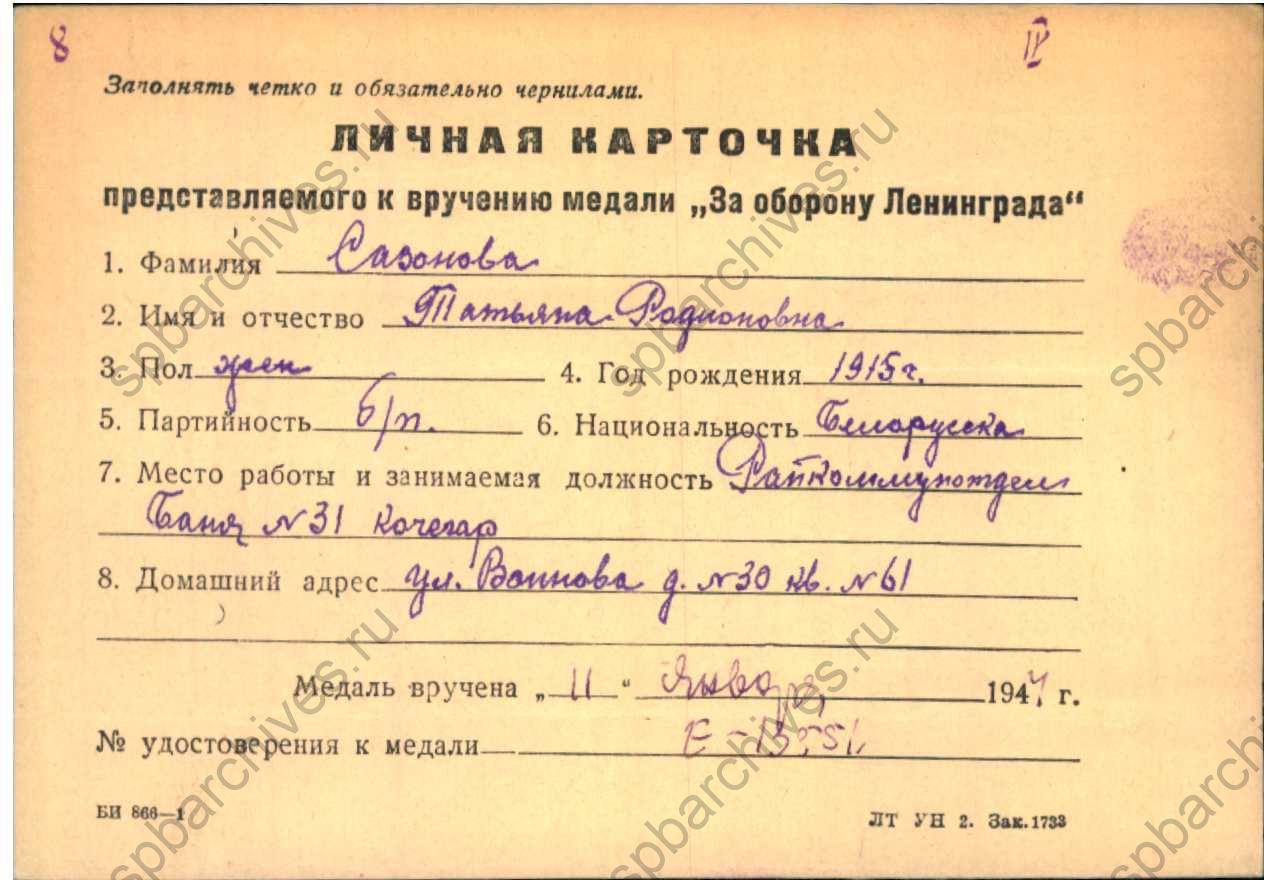 8 IV
Заполнять четко и обязательно чернилами.
ЛИЧНАЯ КАРТОЧКА
представляемого к вручению медали „За оборону Ленинграда“
1. Фамилия Сазонова
2. Имя и отчество Татьяна Родионовна
3. Пол жен 4. Год рождения 1915г.
5. Партийность б/п. 6. Национальность Белорусска
7. Место работы и занимаемая должность Райкоммунотдел
Баня №31 Кочегар
8. Домашний адрес ул. Воинова д. №30 кв. №61
Медаль вручена „11“ Января 1944 г.
№ удостоверения к медали
БИ 866—1 ЛТ УН 2. Зак. 1733
spbarchives.ru